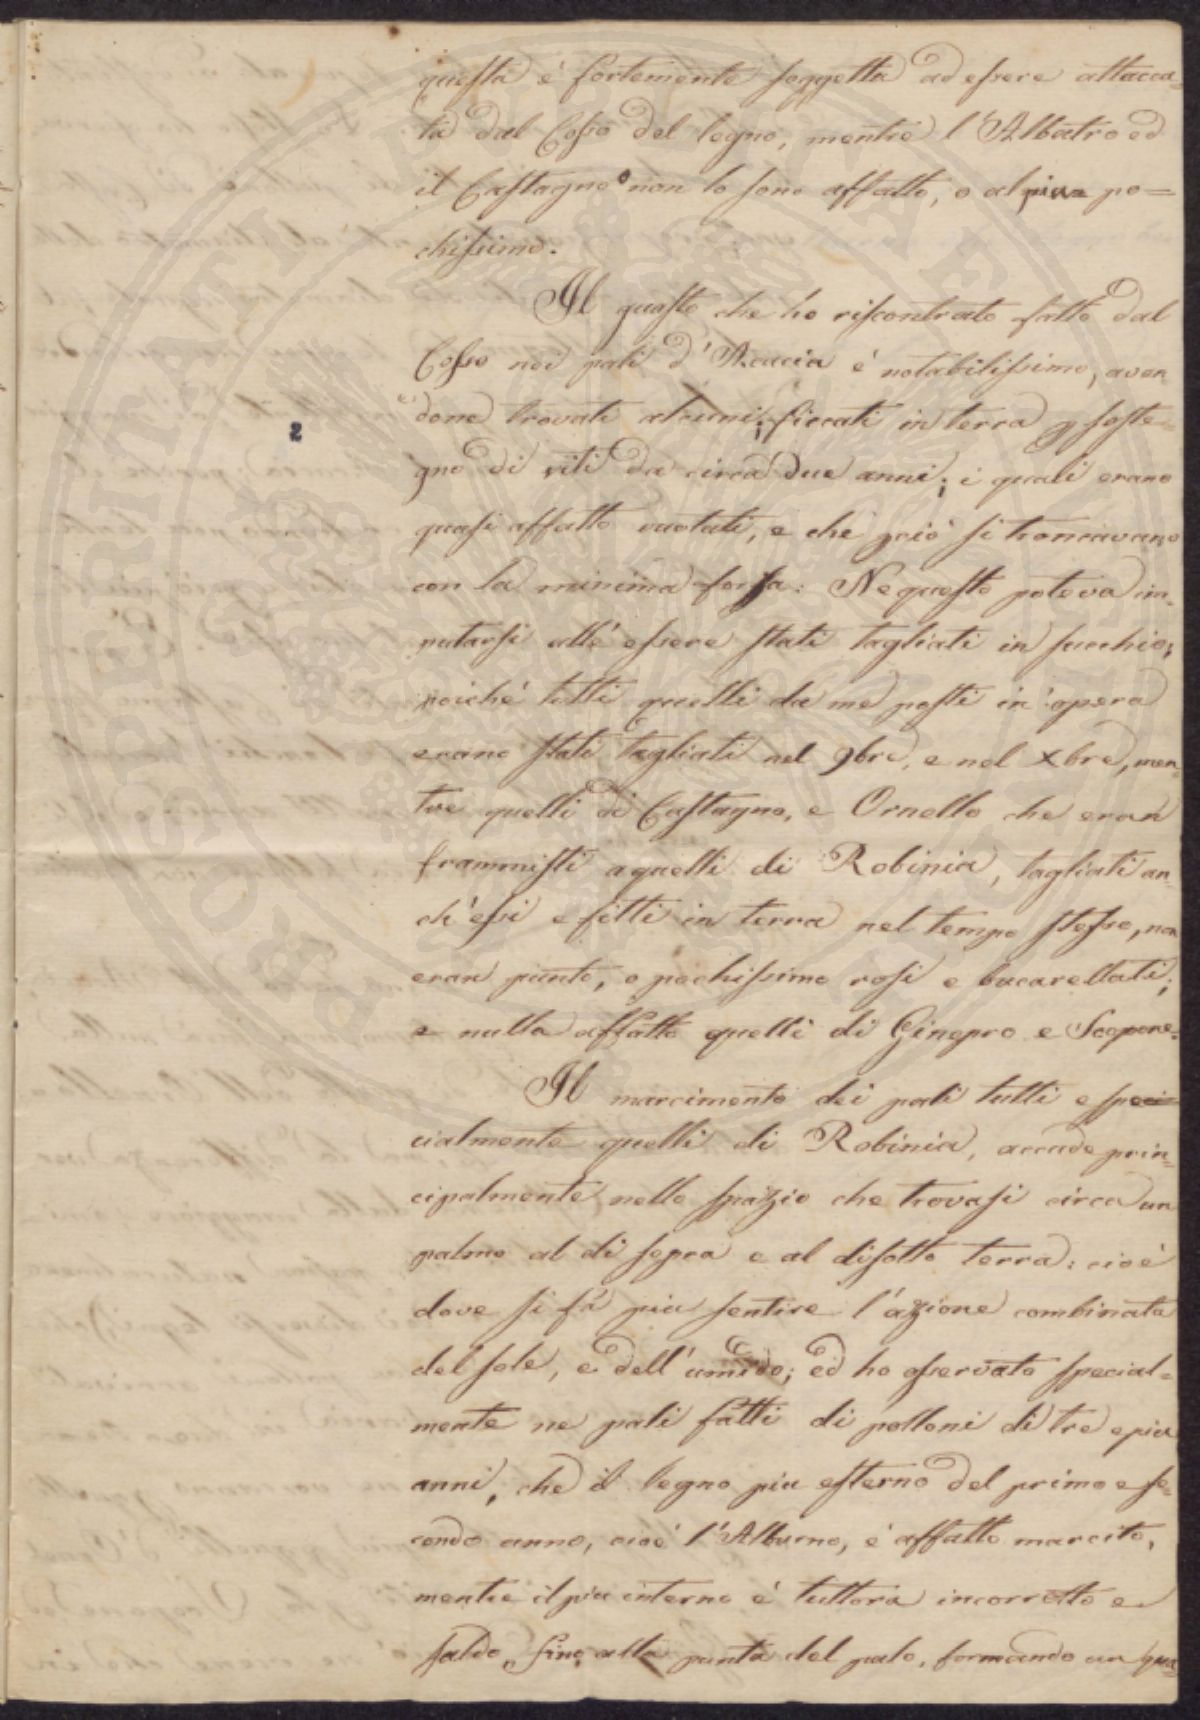 questa è fortemente soggetta ad essere attacca-
ta dal Cosso del legno, mentre l'Albatro ed
il Castagno non lo sono affatto, o al piu po=
chissimo.
Il guasto che ho riscontrato fatto dal
Cosso nei pali d'Acacia è notabilissimo, aven
done trovati alcuni, ficcati in terra p soste-
gno di viti da circa due anni; i quali erano
quasi affatto vuotati, e che pciò si troncavano
con la minima forza: Ne questo poteva im-
putarsi all'essere stati tagliati in succhio;
poiché tutti quelli da me posti in opera
erano stati tagliati nel 9bre, e nel Xbre, men-
tre quelli di Castagno, e Ornello che eran
frammisti a quelli di Robinia, tagliati an-
ch'essi e fitti in terra nel tempo stesso, non
eran punto, o pochissimo rosi e bucarellati;
e nulla affatto quelli di Ginepro e Scopone.
Il marcimento dei pali tutti e spe-
cialmente quelli di Robinia, accade prin-
cipalmente nello spazio che trovasi circa un
palmo al di sopra e al disotto terra: cioè
dove si fà piu sentire l'azione combinata
del sole, e dell'umido; ed ho osservato special-
mente ne pali fatti di polloni di tre e piu
anni, che il legno piu esterno del primo e se-
condo anno, cioè l'Alburno, è affatto marcito,
mentre il piu interno è tuttora incorrotto e
saldo, fino alla punta del palo, formando un qua-
2
PROSPERITATI PUBLICAE